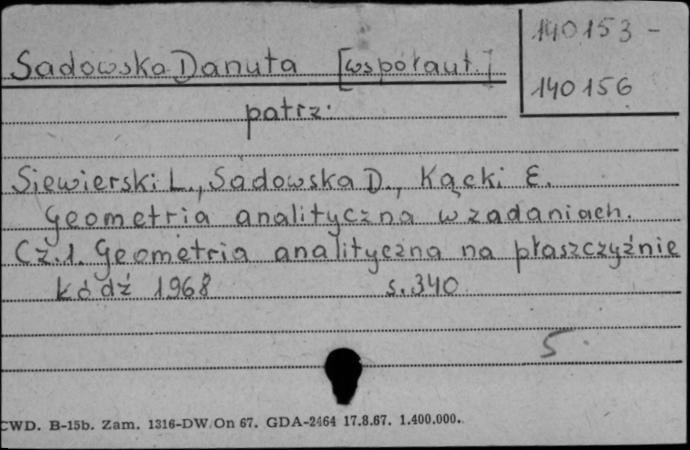 140153 -
Sadowska Danuta [współaut.]
140156
patrz:
Siewierski L., Sadowska D., Kącki E.
Geometria analityczna w zadaniach.
Cz.1. Geometria analityczna na płaszczyźnie
Łódź 1968 s.340
5.
CWD. B-15b. Zam. 1316-DW/On 67. GDA-2464 17.8.67. 1.400.000.